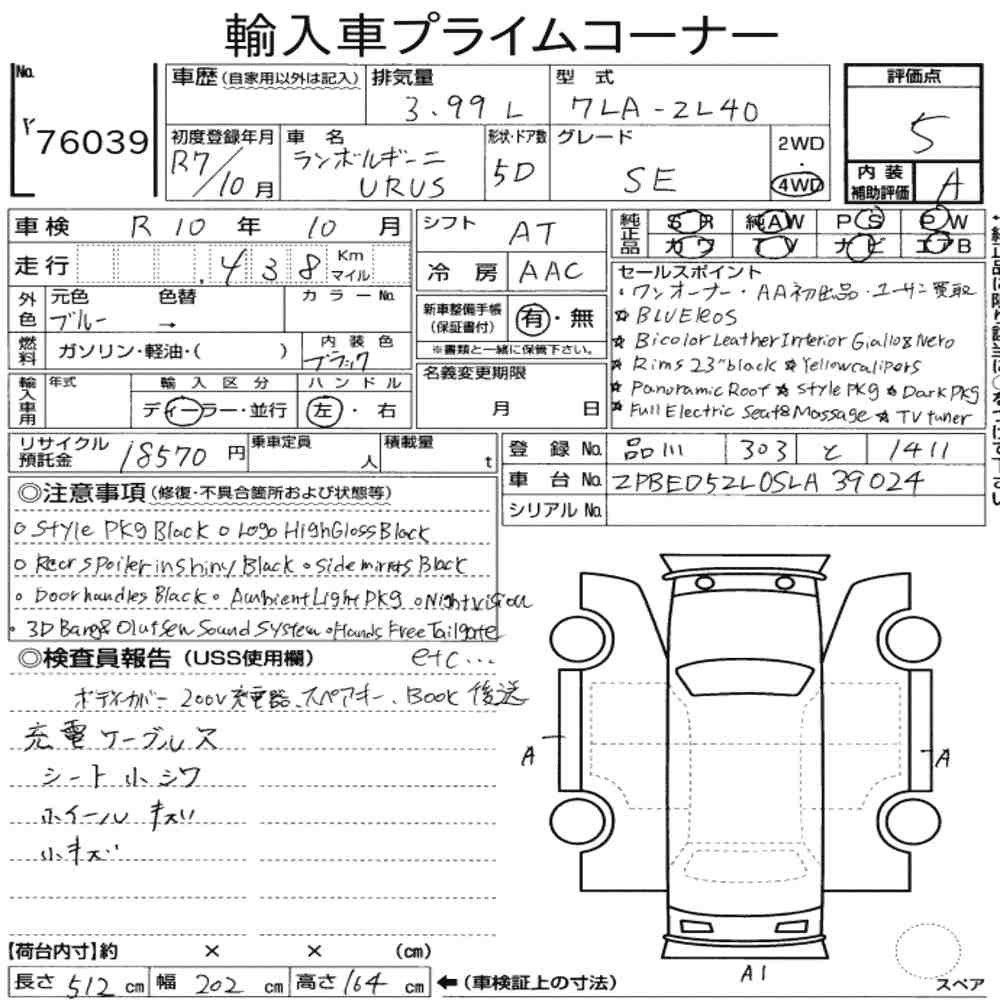 輸入車プライムコーナー
No.
76039
車歴(自家用以外は記入)
排気量
3.99 L
型式
7LA-ZL40
初度登録年月
R7/10月
車名
ランボルギーニ
URUS
形状・ドア数
5D
グレード
SE
2WD
・
4WD
評価点
5
内装
補助評価
A
車検 R10年 10月
走行 .438 Km マイル
外色
元色
ブルー
色替
→
カラーNo.
燃料
ガソリン・軽油・( )
内装色
ブラック
輸入車用
年式
輸入区分
ディーラー・並行
ハンドル
左・右
シフト
AT
冷房
AAC
新車整備手帳
(保証書付)
有・無
※書類と一緒に保管下さい。
名義変更期限
月 日
純正品
SR 純AW PS PW
カワ TV ナビ エアB
セールスポイント
・ワンオーナー・AA初出品・ユーザー買取
☆ BLUE leos
☆ Bicolor Leather Interior Giallo& Nero
☆ Rims 23" black ☆ Yellow calipers
☆ Panoramic Roof ☆ Style PKg ☆ Dark PKg
☆ Full Electric Seat& Massage ☆ TV tuner
リサイクル
預託金
18570円
乗車定員
人
積載量
t
登録No. 品川 303 と 1411
車台No. ZPBED5ZL0SLA39024
シリアルNo.
◎注意事項(修復・不具合箇所および状態等)
○ Style PKg Black ○ Logo High Gloss Black
○ Rear spoiler in shiny Black ○ side mirrors Black
○ Door handles Black ○ Ambient Light PKg ○ Night vision
○ 3D Bang& Olufsen Sound System ○ Hands Free Tailgate
etc...
◎検査員報告(USS使用欄)
ボディカバー、200V充電器、スペアキー、Book後送
充電ケーブル又
シート小シワ
ホイールキズ
小キズ
A
A
A1
【荷台内寸】約 × × (cm)
長さ512cm 幅202cm 高さ164cm
←(車検証上の寸法)
スペア